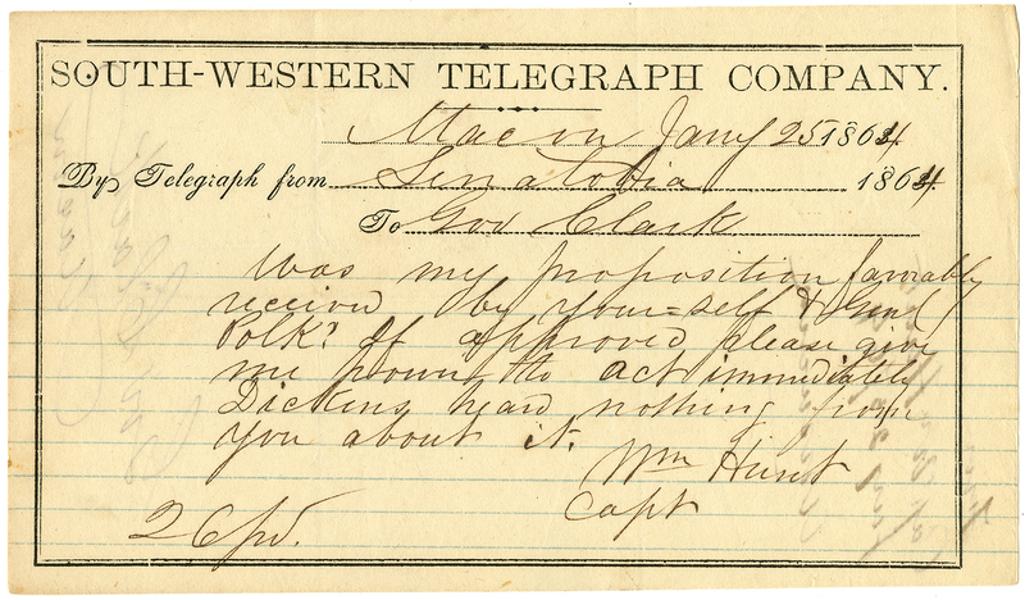 SOUTH-WESTERN TELEGRAPH COMPANY.
Macon Jany 25 1864
By Telegraph from Senatobia 1864
To Gov Clark
Was my proposition favorably
received by your=self & Genl
Polk? If approved please give
me power to act immediately
Dickens heard nothing from
you about it.
Wm Hunt
Capt
26 pd.